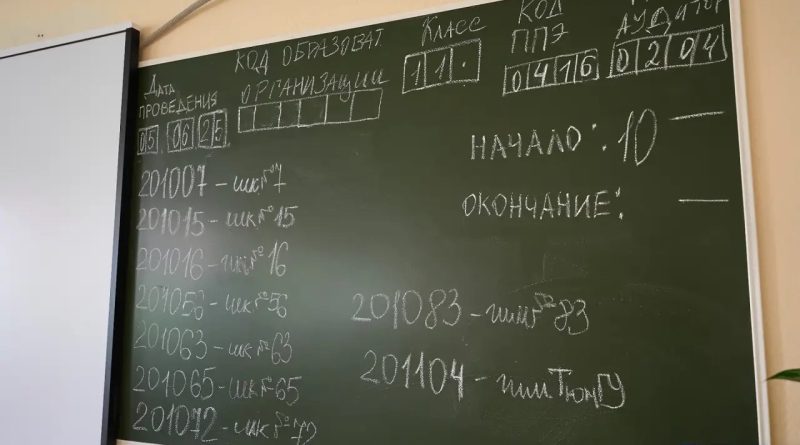 ДАТА ПРОВЕДЕНИЯ
05 06 25
КОД ОБРАЗОВАТ.
ОРГАНИЗАЦИИ
КЛАСС
11.
КОД
ППЭ
0416
АУДИТОР
0204
НАЧАЛО: 10 —
ОКОНЧАНИЕ: —
201007 - шк№7
201015 - шк№15
201016 - шк№16
201056 - шк№56
201063 - шк№63
201065 - шк№65
201072 - шк№72
201083 - гимн№83
201104 - гим ТюмГУ